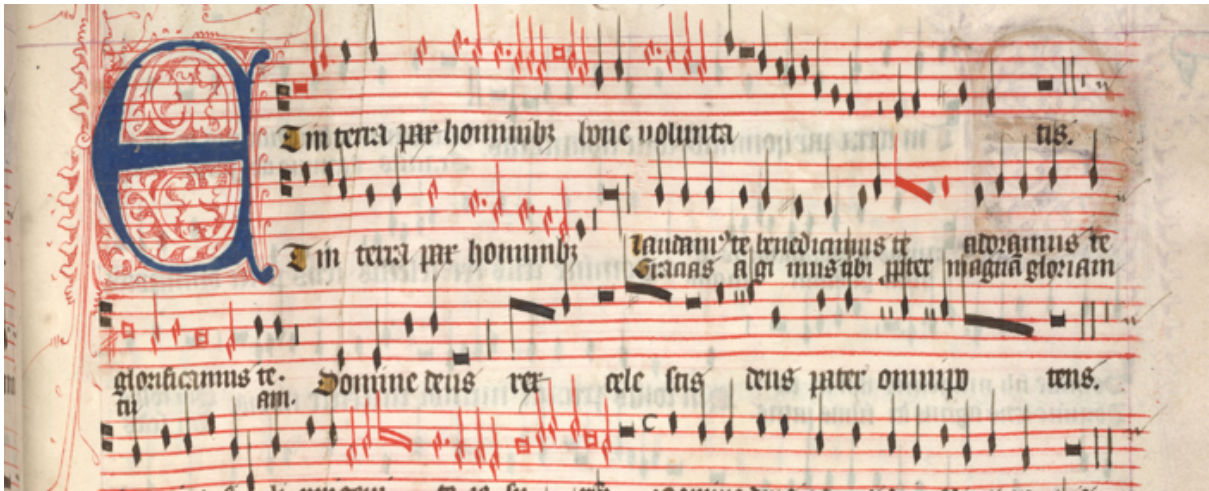 ET in terra pax hominibꝫ bone volunta tis.
ET in terra pax hominibꝫ laudamꝰ te benedicimus te adoramus te
Gracias a gi mus tibi ꝓpter magnā gloriam
glorificamus te. Domine deus rex cele stis deus pater omnipo tens.
tu am.